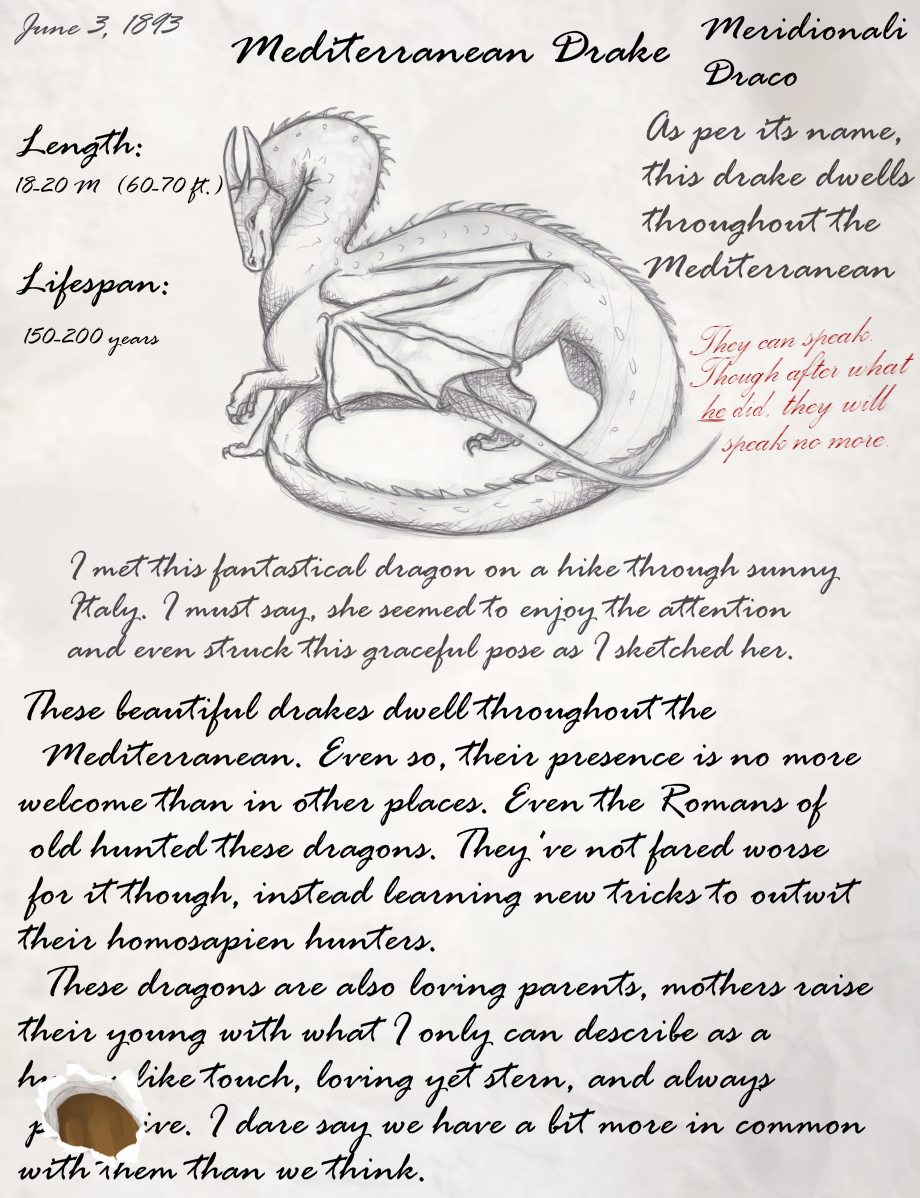 June 3, 1893
Mediterranean Drake
Meridionali
Draco
Length:
18-20 M (60-70 ft.)
Lifespan:
150-200 years
As per its name,
this drake dwells
throughout the
Mediterranean
They can speak.
Though after what
he did, they will
speak no more.
I met this fantastical dragon on a hike through sunny
Italy. I must say, she seemed to enjoy the attention
and even struck this graceful pose as I sketched her.
These beautiful drakes dwell throughout the
Mediterranean. Even so, their presence is no more
welcome than in other places. Even the Romans of
old hunted these dragons. They've not fared worse
for it though, instead learning new tricks to outwit
their homosapien hunters.
These dragons are also loving parents, mothers raise
their young with what I only can describe as a
like touch, loving yet stern, and always
I dare say we have a bit more in common
with them than we think.